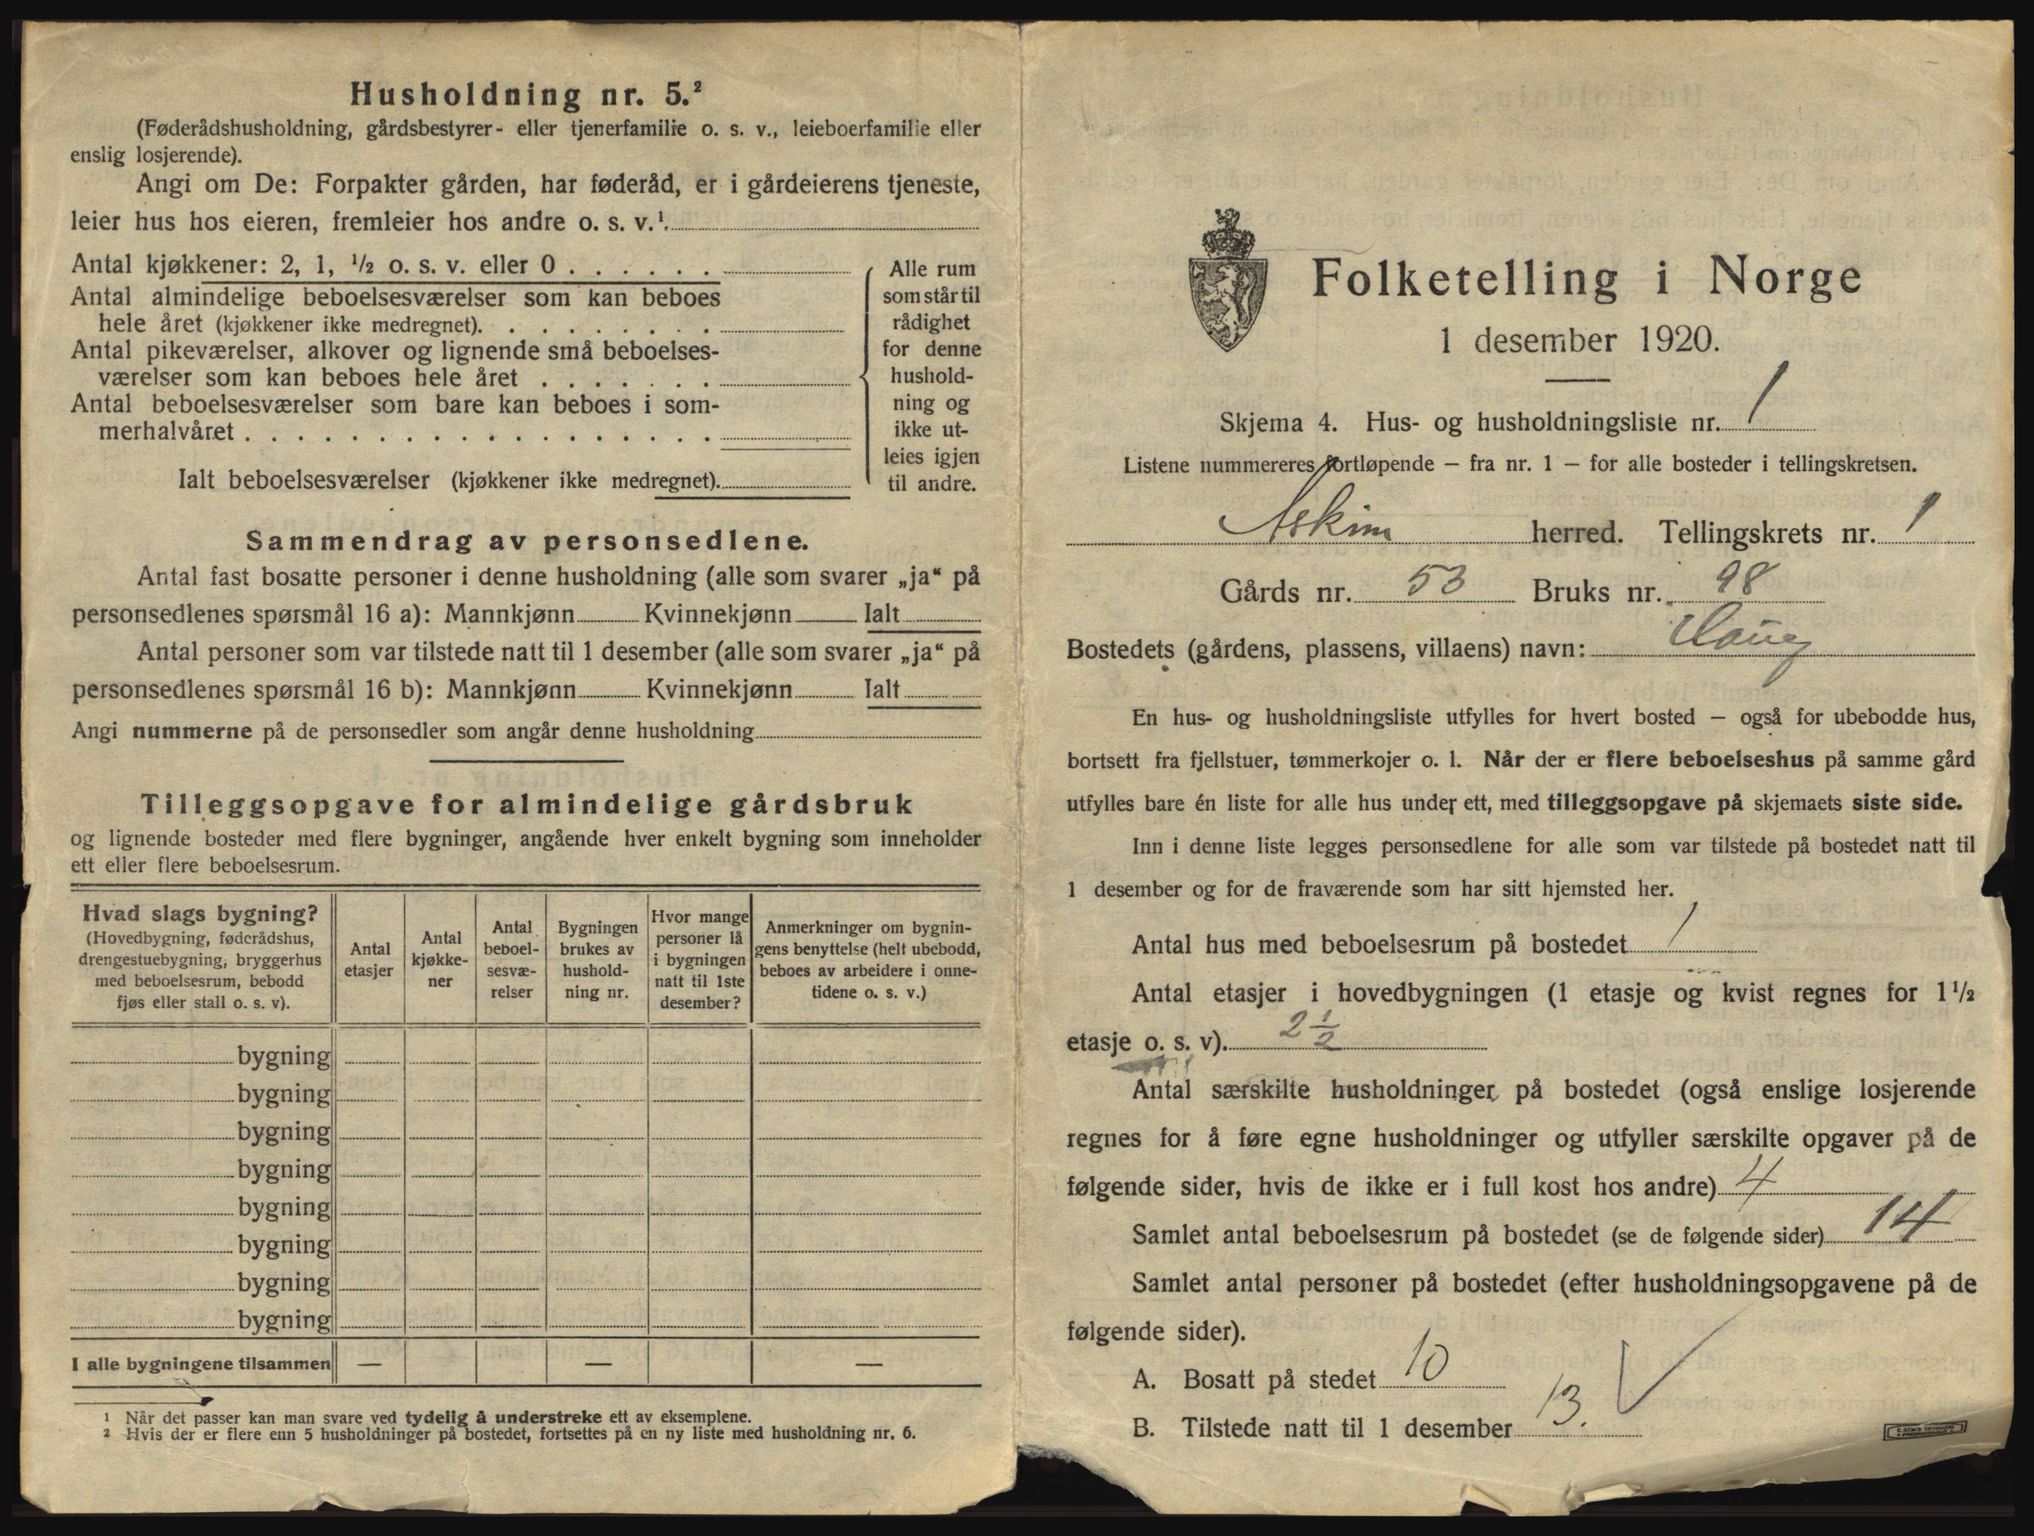 Husholdning nr. 5.²
(Føderådshusholdning, gårdsbestyrer- eller tjenerfamilie o. s. v., leieboerfamilie eller
enslig losjerende).
Angi om De: Forpakter gården, har føderåd, er i gårdeierens tjeneste,
leier hus hos eieren, fremleier hos andre o. s. v.¹.
Antal kjøkkener: 2, 1, ½ o. s. v. eller 0 . . . . . .
Antal almindelige beboelsesværelser som kan beboes
hele året (kjøkkener ikke medregnet). . . . . . . . .
Antal pikeværelser, alkover og lignende små beboelses-
værelser som kan beboes hele året . . . . . . .
Antal beboelsesværelser som bare kan beboes i som-
merhalvåret . . . . . . . . . . . . . . . . . .
Ialt beboelsesværelser (kjøkkener ikke medregnet).
Alle rum
som står til
rådighet
for denne
hushold-
ning og
ikke ut-
leies igjen
til andre.
Sammendrag av personsedlene.
Antal fast bosatte personer i denne husholdning (alle som svarer „ja“ på
personsedlenes spørsmål 16 a): Mannkjønn Kvinnekjønn Ialt
Antal personer som var tilstede natt til 1 desember (alle som svarer „ja“ på
personsedlenes spørsmål 16 b): Mannkjønn Kvinnekjønn Ialt
Angi nummerne på de personsedler som angår denne husholdning
Tilleggsopgave for almindelige gårdsbruk
og lignende bosteder med flere bygninger, angående hver enkelt bygning som inneholder
ett eller flere beboelsesrum.
Hvad slags bygning?
(Hovedbygning, føderådshus,
drengestuebygning, bryggerhus
med beboelsesrum, bebodd
fjøs eller stall o. s. v).
Antal
etasjer
Antal
kjøkke-
ner
Antal
beboel-
sesvæ-
relser
Bygningen
brukes av
hushold-
ning nr.
Hvor mange
personer lå
i bygningen
natt til 1ste
desember?
Anmerkninger om bygnin-
gens benyttelse (helt ubebodd,
beboes av arbeidere i onne-
tidene o. s. v.)
bygning
bygning
bygning
bygning
bygning
bygning
bygning
bygning
I alle bygningene tilsammen — — —
¹ Når det passer kan man svare ved tydelig å understreke ett av eksemplene.
² Hvis der er flere enn 5 husholdninger på bostedet, fortsettes på en ny liste med husholdning nr. 6.
Folketelling i Norge
1 desember 1920.
Skjema 4. Hus- og husholdningsliste nr. 1
Listene nummereres fortløpende – fra nr. 1 – for alle bosteder i tellingskretsen.
Askim herred. Tellingskrets nr. 1
Gårds nr. 53 Bruks nr. 98
Bostedets (gårdens, plassens, villaens) navn: Haug
En hus- og husholdningsliste utfylles for hvert bosted – også for ubebodde hus,
bortsett fra fjellstuer, tømmerkojer o. l. Når der er flere beboelseshus på samme gård
utfylles bare én liste for alle hus under ett, med tilleggsopgave på skjemaets siste side.
Inn i denne liste legges personsedlene for alle som var tilstede på bostedet natt til
1 desember og for de fraværende som har sitt hjemsted her.
Antal hus med beboelsesrum på bostedet 1
Antal etasjer i hovedbygningen (1 etasje og kvist regnes for 1½
etasje o. s. v). 2½
Antal særskilte husholdninger på bostedet (også enslige losjerende
regnes for å føre egne husholdninger og utfyller særskilte opgaver på de
følgende sider, hvis de ikke er i full kost hos andre) 4
Samlet antal beboelsesrum på bostedet (se de følgende sider) 14
Samlet antal personer på bostedet (efter husholdningsopgavene på de
følgende sider).
A. Bosatt på stedet 10
B. Tilstede natt til 1 desember 13.